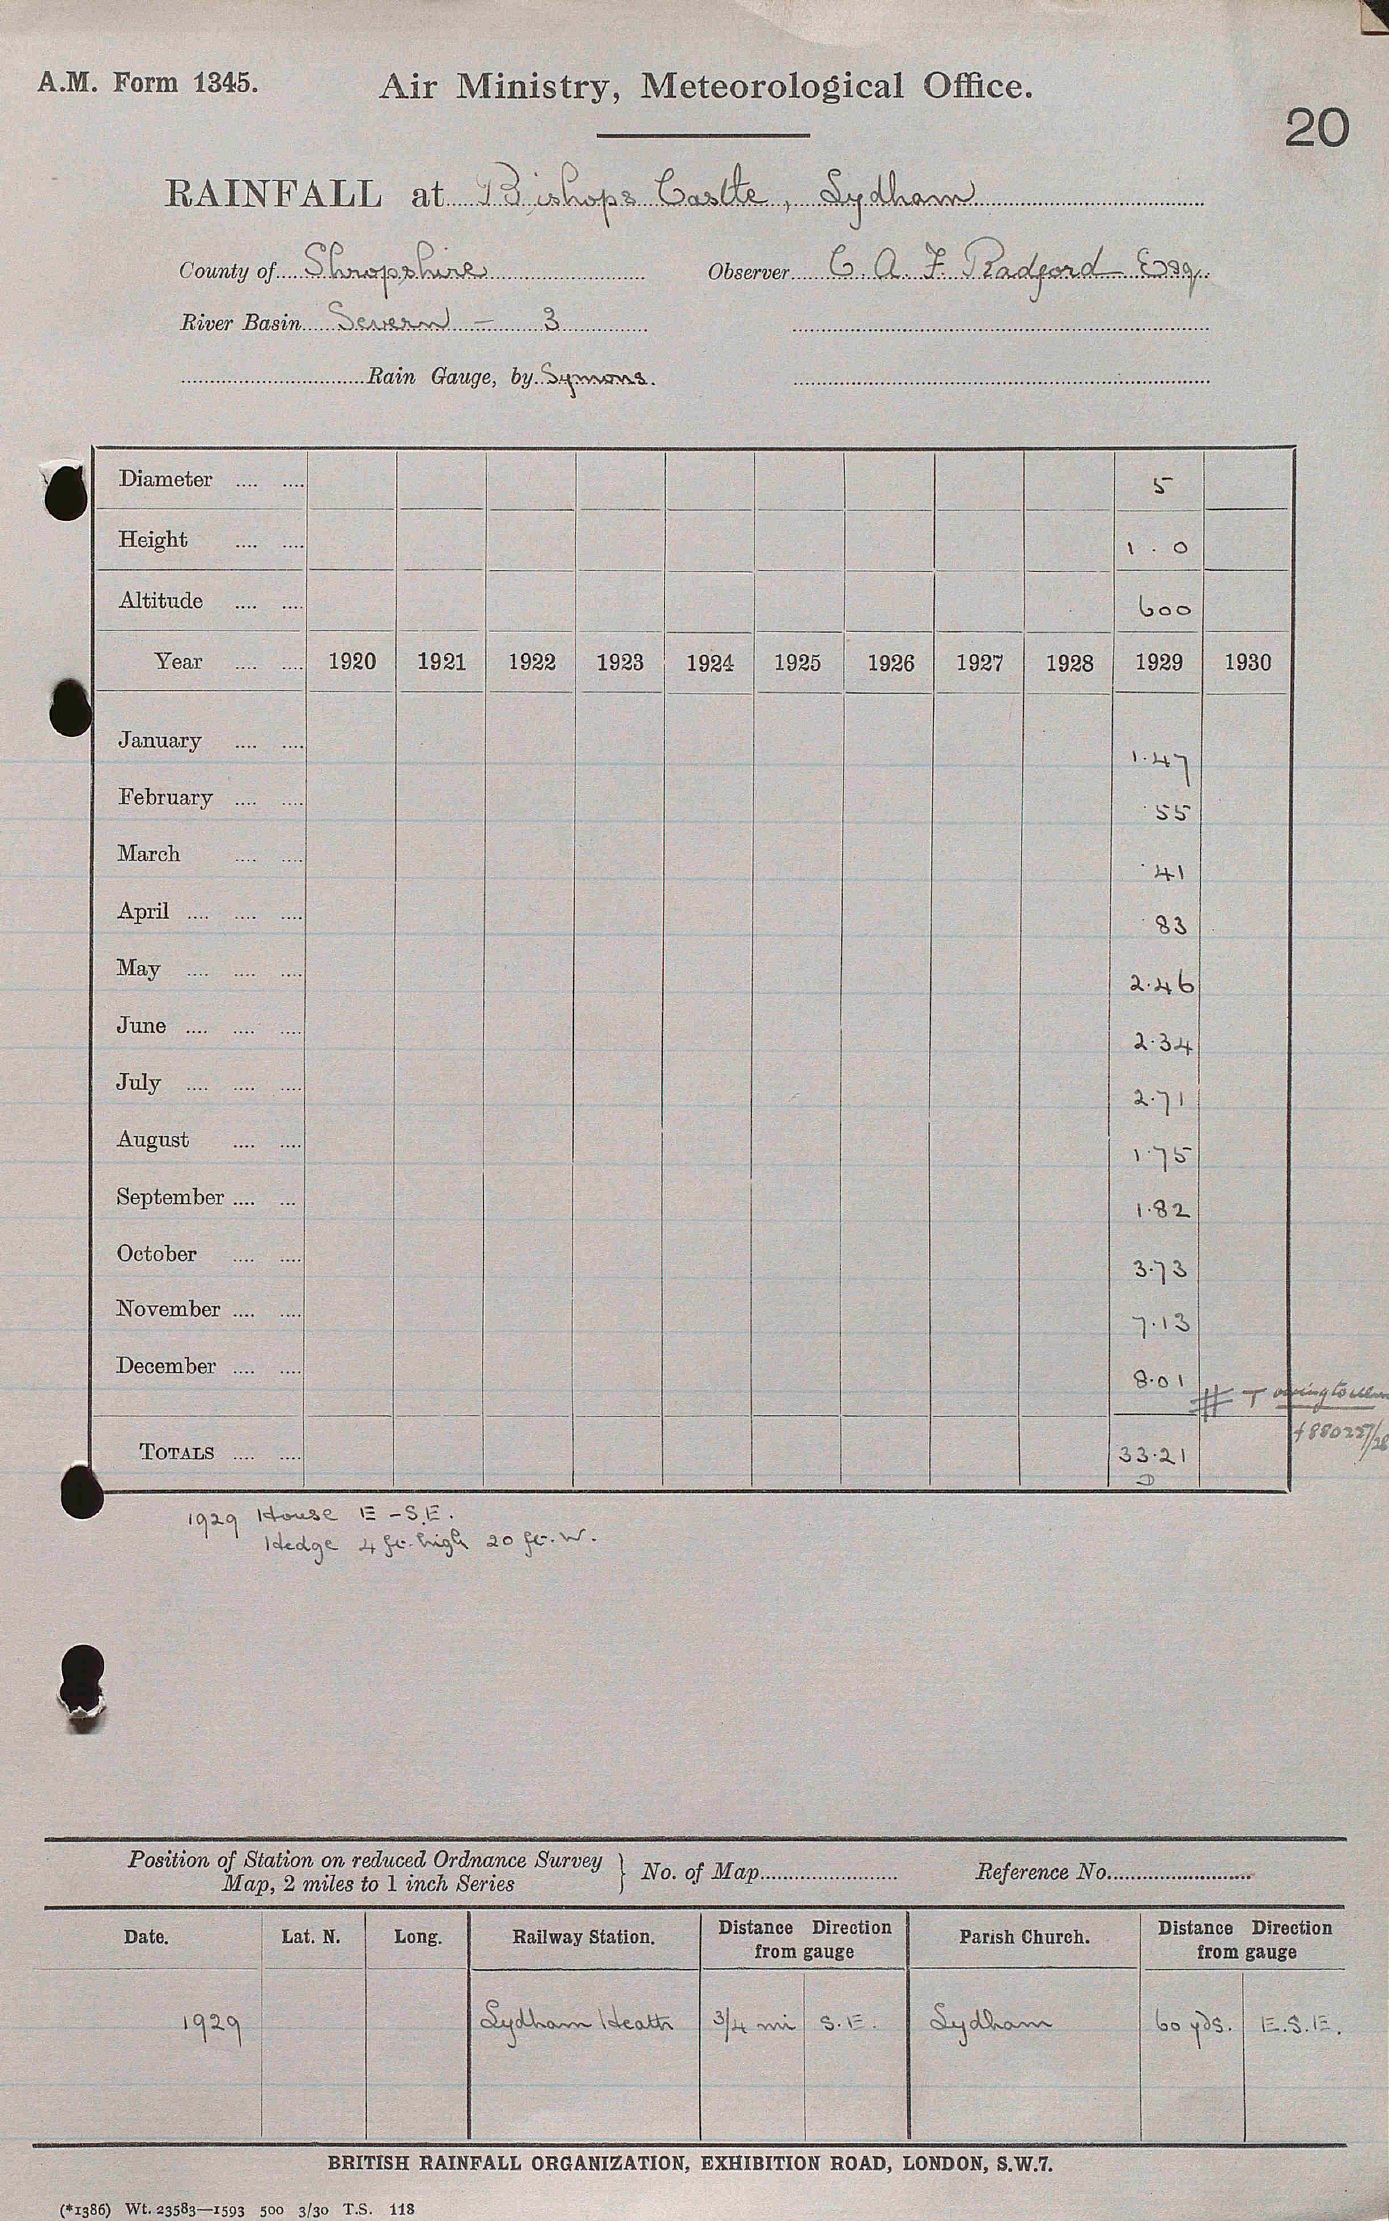 A.M. Form 1345.
Air Ministry, Meteorological Office.
20
RAINFALL at Bishops Castle, Lydham
County of Shropshire Observer C. A. F. Radford Esq.
River Basin Severn - 3
Rain Gauge, by Symons.
Diameter 5
Height 1.0
Altitude 600
Year 1920 1921 1922 1923 1924 1925 1926 1927 1928 1929 1930
January 1.47
February .55
March .41
April .83
May 2.46
June 2.34
July 2.71
August 1.75
September 1.82
October 3.73
November 7.13
December 8.01
T owing to
TOTALS 33.21
1929 House E - S.E.
Hedge 4 ft. high 20 ft. W.
Position of Station on reduced Ordnance Survey Map, 2 miles to 1 inch Series } No. of Map Reference No.
Date. Lat. N. Long. Railway Station. Distance Direction from gauge Parish Church. Distance Direction from gauge
1929 Lydham Heath 3/4 mi S.E. Lydham 60 yds. E.S.E.
BRITISH RAINFALL ORGANIZATION, EXHIBITION ROAD, LONDON, S.W.7.
(*1386) Wt. 23583—1593 500 3/30 T.S. 118